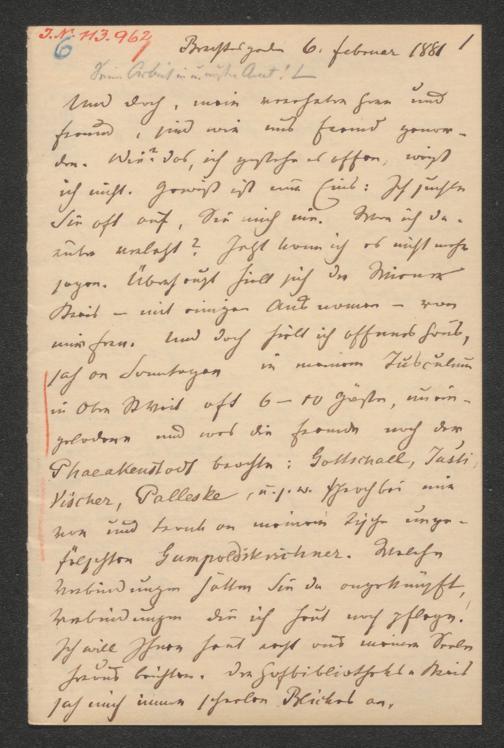 J.N. 113.962
6
Berchtesgaden 6. Februar 1881 1
Und doch, mein verehrter Herr und
Freund, sind wir uns fremd gewor-
den. Wie? das, ich gestehe es offen, weiß
ich nicht. Gewiß ist nur Eins: Ich suchte
Sie oft auf, Sie mich nie. Wer ich da-
runter? Jetzt kann ich es nicht mehr
sagen. Überhaupt hielt sich der Wiener
Kreis – mit einigen Ausnamen – von
mir fern. Und doch hielt ich offenes Haus,
sah an Sonntagen in meinem Tusculum
in Ober St Veit oft 6–10 Gäste, unein-
geladene und was die Fremde nach der
Phaeakenstadt brachte: Gottschall, Justi,
Vischer, Palleske, u.s.w. sprach bei mir
vor und trank an meinem Tische unge-
fälschten Gumpoldskirchner. Welche
Verbindungen hätten Sie da angeknüpft,
Verbindungen die ich heut noch pflege.
Ich will Ihnen heut recht aus meiner Seele
heraus beichten. Der Hofbibliotheks-Kreis
sah mich immer scheelen Blickes an,